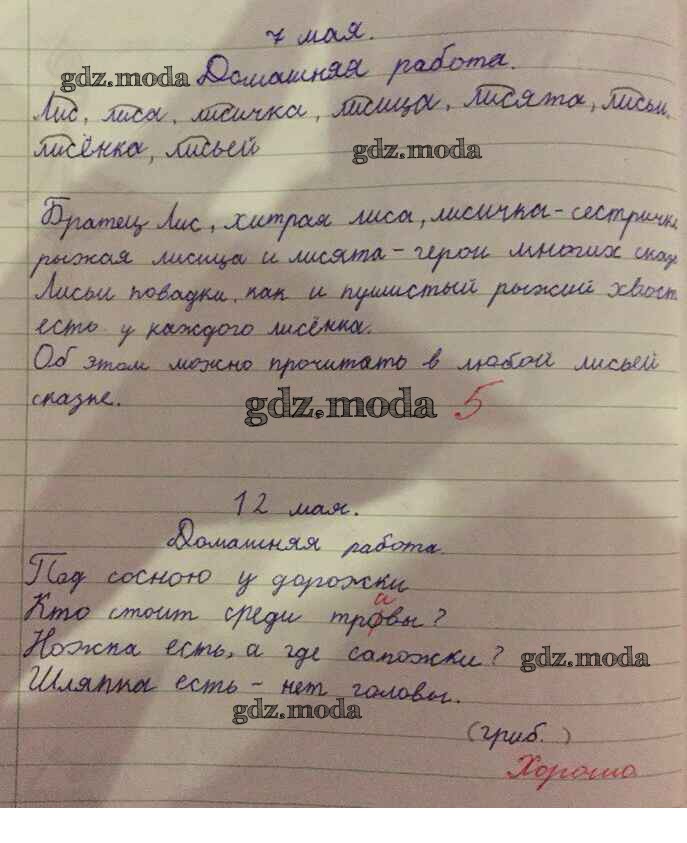 7 мая.
gdz.moda Домашняя работа.
Лис, лиса, лисичка, лисица, лисята, лисьи,
лисёнка, лисьей gdz.moda
Братец Лис, хитрая лиса, лисичка-сестричка
рыжая лисица и лисята - герои многих
Лисьи повадки, как и пушистый рыжий хвост
есть у каждого лисёнка.
Об этом можно прочитать в любой лисьей
сказке. gdz.moda 5
12 мая.
Домашняя работа.
Под сосною у дорожки
а
Кто стоит среди тровы?
Ножка есть, а где сапожки? gdz.moda
Шляпка есть - нет головы.
gdz.moda
(гриб.)
Хорошо